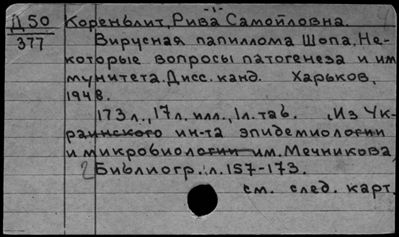 -1-
Д50 Коренблит, Рива Самойловна.
377 Вирусная папиллома Шопа. Не-
которые вопросы патогенеза и им
мунитета. Дисс. канд. Харьков,
1948.
173л., 17л. илл., 1л. таб. Из Ук-
раинского ин-та эпидемиологии
и микробиологии им. Мечникова,
2 Библиогр.: л. 157-173.
см. след. карт.